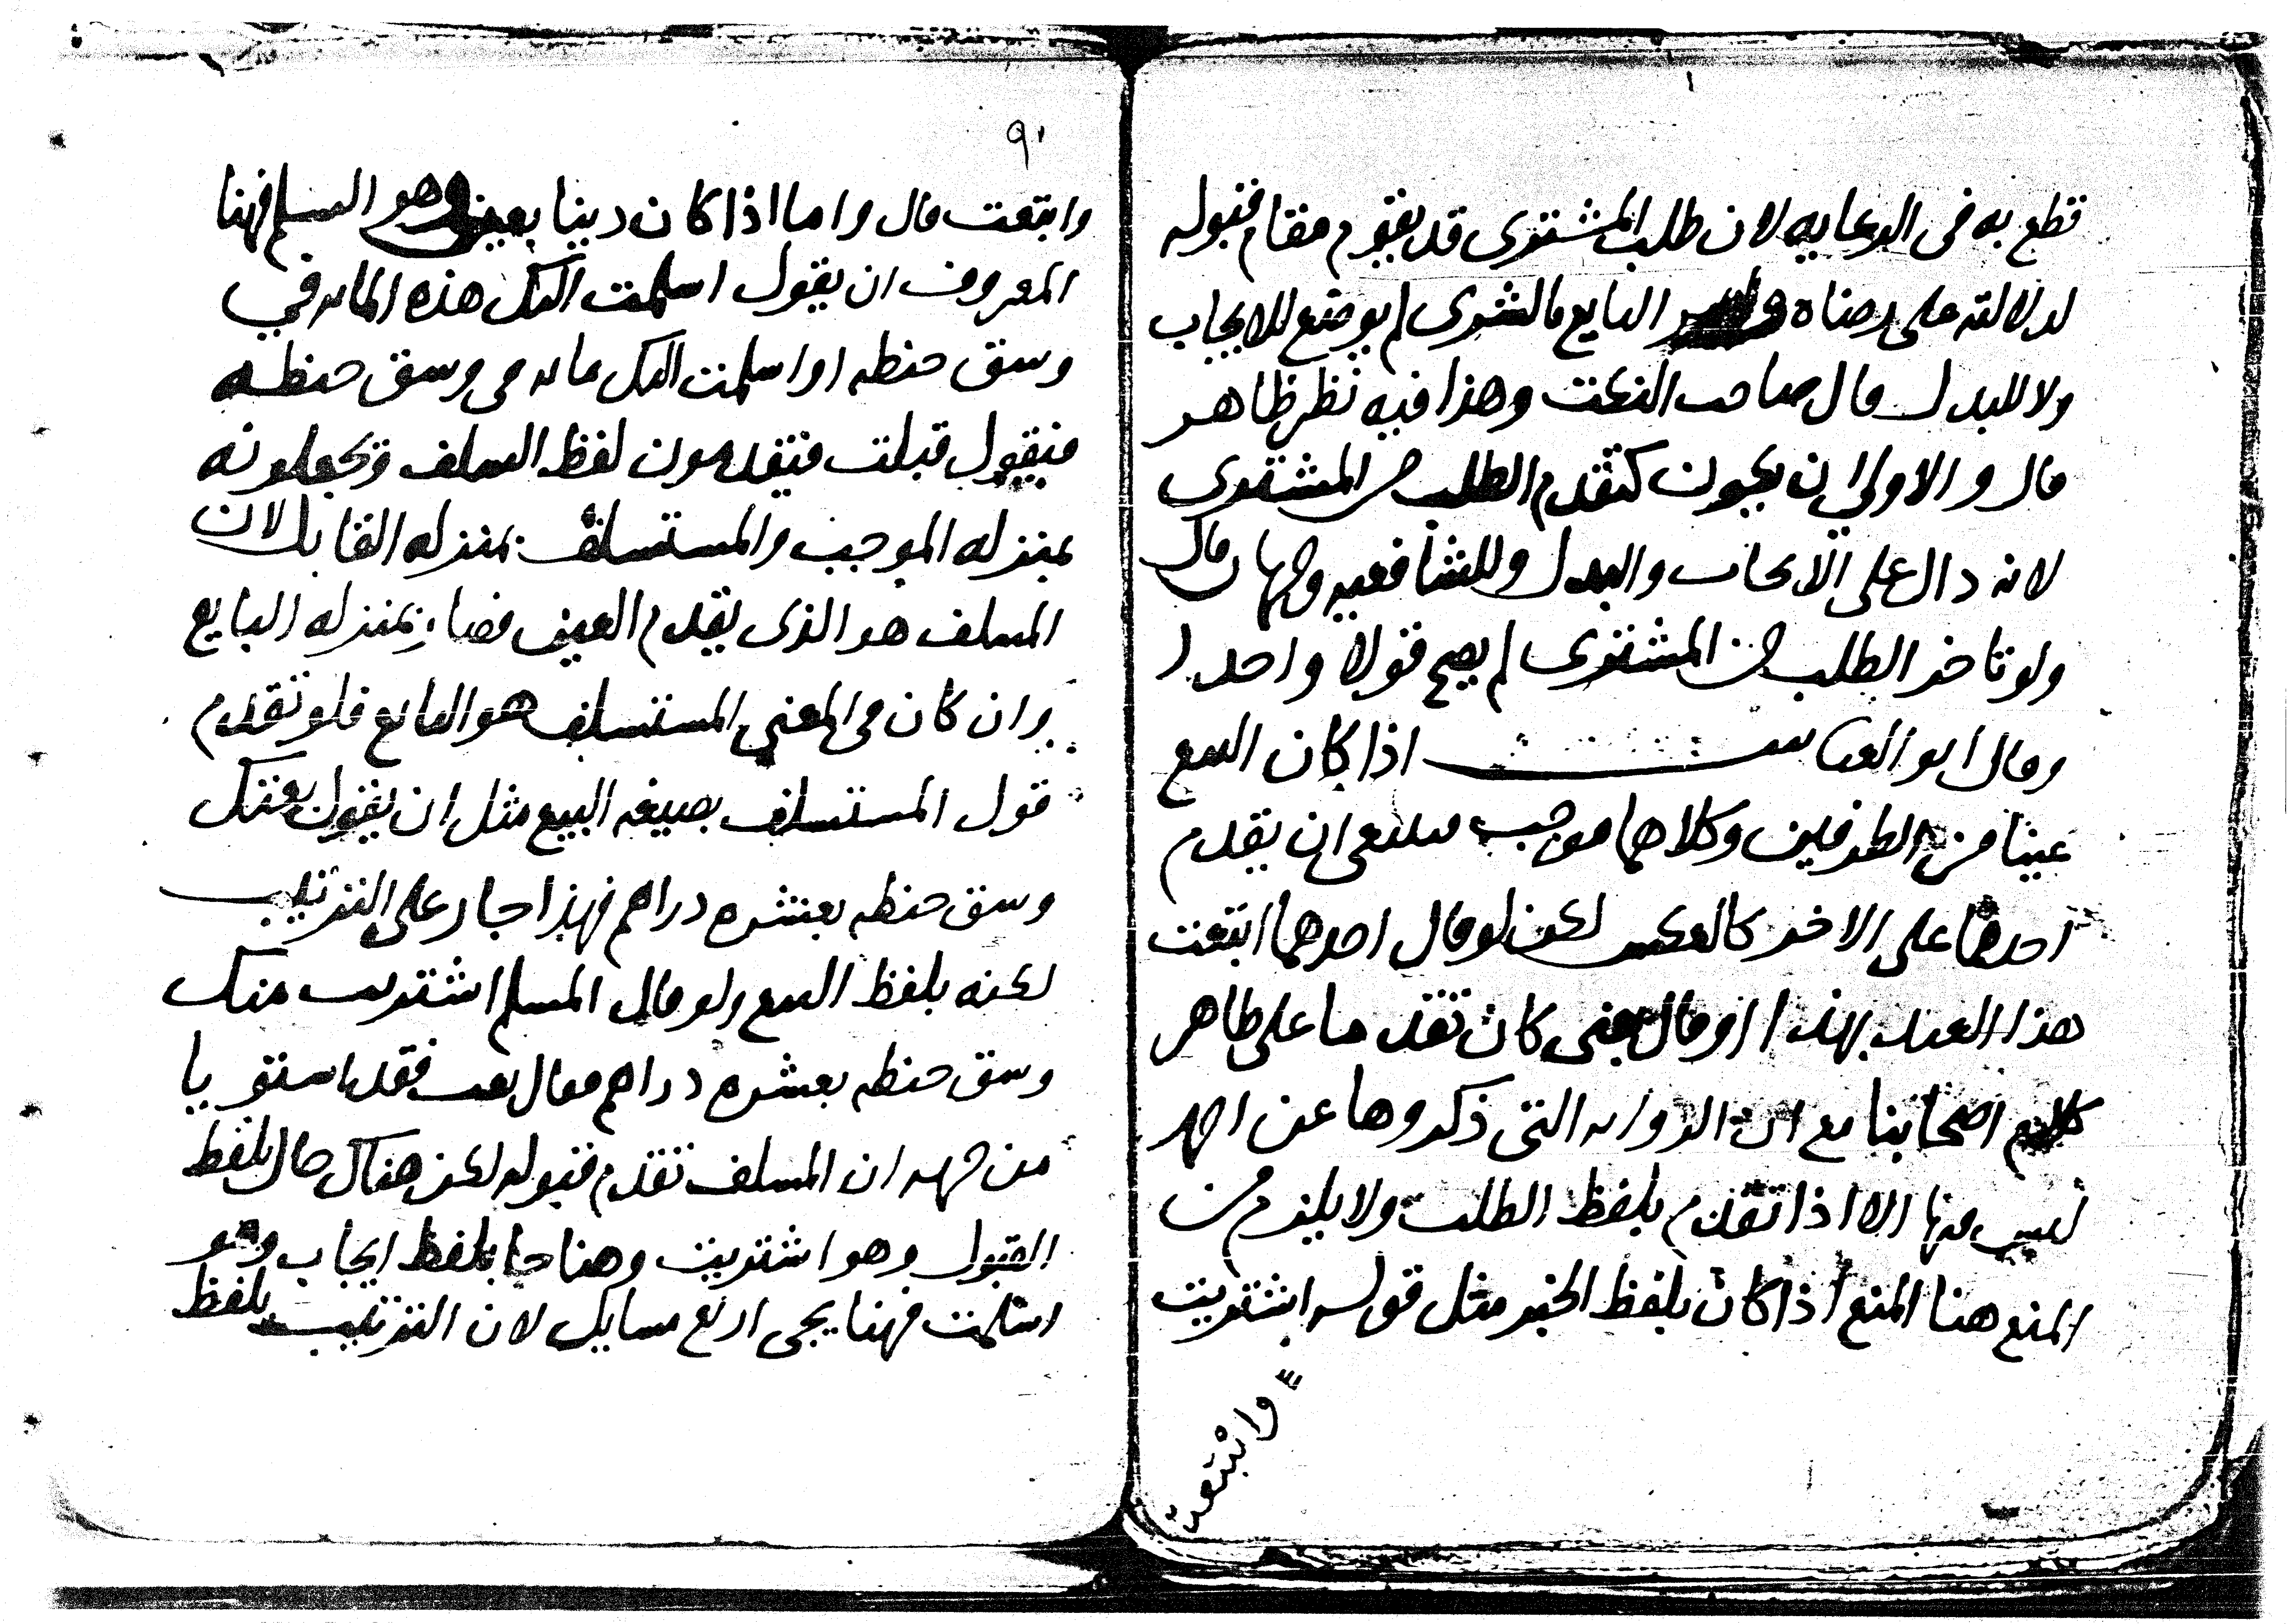 قطع به فى الرعايه لان طلب المشترى قد يقوم مقام قبوله
لدلالته على رضاه البايع بالشرى لم يوضع للايجاب
ولا للبدل قال صاحب النكت وهذا فيه نظر ظاهر
قال والاولى ان يكون كتقدم الطلب من المشترى
لانه دال على الايجاب والبدل وللشافعيه وجهان قال
ولو تاخر الطلب من المشترى لم يصح قولا واحدا
وقال ابو العباس اذا كان البيع
عينا من الطرفين وكلاهما موجب فينبغى ان يقدم
احدهما على الاخر كالعكس لكن لو قال احدهما ابتعت
هذا العبد بهذا او قال بعنى كان تقدما على ظاهر
كلام اصحابنا مع ان الروايه التى ذكروها عن احمد
ليس منها الا اذا تقدم بلفظ الطلب ولا يلزم من
المنع هنا المنع اذا كان بلفظ الخبر مثل قوله اشتريت
وابتعت
٩٠
وابتعت قال واما اذا كان دينا بعين وهو السلم فهنا
المعروف ان يقول اسلمت اليك هذه المايه في
وسق حنطه او اسلمت اليك مايه فى وسق حنطه
فيقول قبلت فيتقدمون لفظ السلف وتجعلونه
بمنزله الموجب والمستسلف بمنزله القابل لان
المسلف هو الذى يقدم العين فصار بمنزله البايع
وان كان فى المعنى المستسلف هو البايع فلو تقدم
قول المستسلف بصيغه البيع مثل ان يقول بعتك
وسق حنطه بعشره دراهم فهذا جار على الترتيب
لكنه بلفظ البيع ولو قال المسلم اشتريت منك
وسق حنطه بعشره دراهم فقال بعت فقد استويا
من جهه ان المسلف تقدم قبوله لكن هناك حال بلفظ
القبول وهو اشتريت وهنا جا بلفظ ايجاب وهو
اسلمت فهنا يجى اربع مسايل لان الترتيب بلفظ